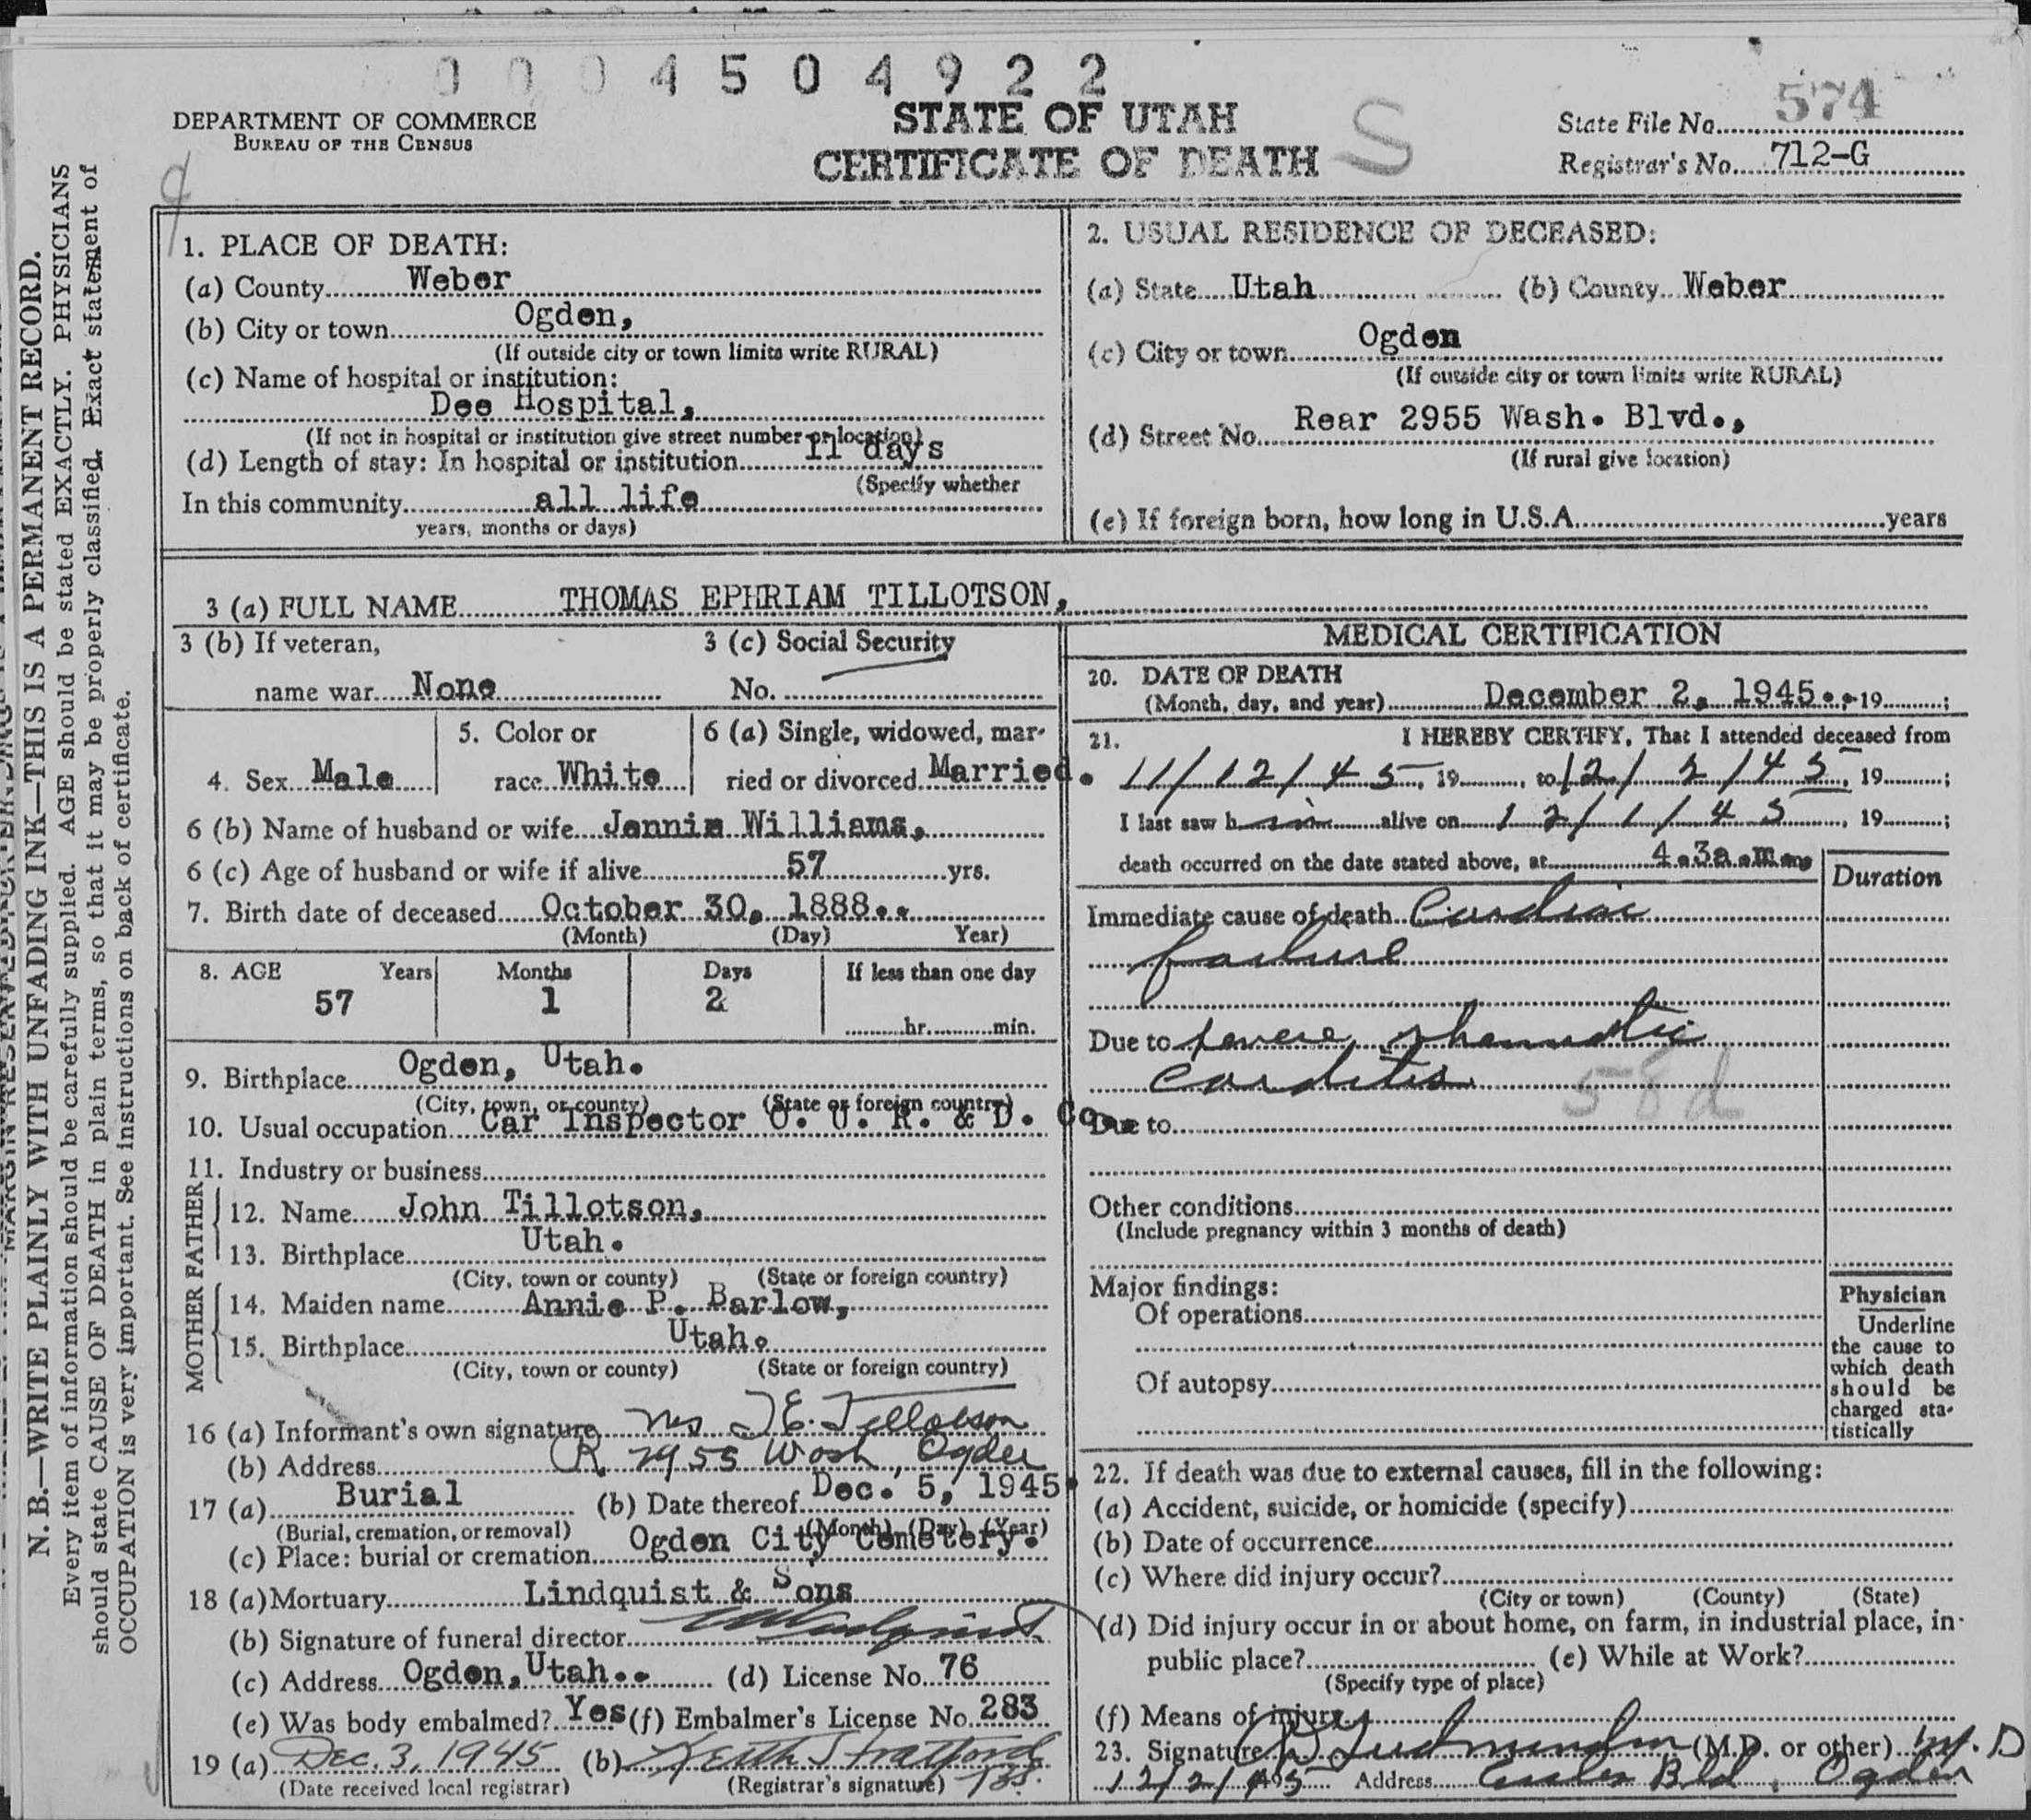 0004504922
DEPARTMENT OF COMMERCE
BUREAU OF THE CENSUS
STATE OF UTAH
CERTIFICATE OF DEATH
S
State File No. 574
Registrar's No. 712-G
N. B.—WRITE PLAINLY WITH UNFADING INK—THIS IS A PERMANENT RECORD.
Every item of information should be carefully supplied. AGE should be stated EXACTLY. PHYSICIANS
should state CAUSE OF DEATH in plain terms, so that it may be properly classified. Exact statement of
OCCUPATION is very important. See instructions on back of certificate.
1. PLACE OF DEATH:
(a) County Weber
(b) City or town Ogden,
(If outside city or town limits write RURAL)
(c) Name of hospital or institution:
Dee Hospital,
(If not in hospital or institution give street number or location)
(d) Length of stay: In hospital or institution 11 days
(Specify whether
In this community all life
years, months or days)
2. USUAL RESIDENCE OF DECEASED:
(a) State Utah (b) County Weber
(c) City or town Ogden
(If outside city or town limits write RURAL)
(d) Street No. Rear 2955 Wash. Blvd.,
(If rural give location)
(e) If foreign born, how long in U.S.A. years
3 (a) FULL NAME THOMAS EPHRIAM TILLOTSON,
3 (b) If veteran, 3 (c) Social Security
name war None No.
4. Sex Male 5. Color or race White 6 (a) Single, widowed, married or divorced Married.
6 (b) Name of husband or wife Jennie Williams,
6 (c) Age of husband or wife if alive 57 yrs.
7. Birth date of deceased October 30, 1888..
(Month) (Day) Year)
8. AGE Years Months Days If less than one day
57 1 2 hr. min.
9. Birthplace Ogden, Utah.
(City, town, or county) (State or foreign country)
10. Usual occupation Car Inspector O. U. R. & D. Co.
11. Industry or business
FATHER
12. Name John Tillotson,
13. Birthplace Utah.
(City, town or county) (State or foreign country)
MOTHER
14. Maiden name Annie P. Barlow,
15. Birthplace Utah.
(City, town or county) (State or foreign country)
16 (a) Informant's own signature Mrs T E. Tillotson
(b) Address R 2955 Wash, Ogden
17 (a) Burial (b) Date thereof Dec. 5, 1945.
(Burial, cremation, or removal) (Month) (Day) (Year)
(c) Place: burial or cremation Ogden City Cemetery.
18 (a) Mortuary Lindquist & Sons
(b) Signature of funeral director
(c) Address Ogden, Utah.. (d) License No. 76
(e) Was body embalmed? Yes (f) Embalmer's License No. 283
19 (a) Dec. 3, 1945 (b) Keith Stratford
(Date received local registrar) (Registrar's signature)
MEDICAL CERTIFICATION
20. DATE OF DEATH
(Month, day, and year) December 2, 1945.. 19 ;
21. I HEREBY CERTIFY, That I attended deceased from
11/12/45, 19 , to 12/2/45, 19 ;
I last saw him alive on 12/1/45, 19 ;
death occurred on the date stated above, at 4.3a.m.
Duration
Immediate cause of death Cardiac
failure
Due to severe rheumatic
carditis
58d
Due to
Other conditions
(Include pregnancy within 3 months of death)
Major findings:
Of operations
Of autopsy
Physician
Underline
the cause to
which death
should be
charged sta-
tistically
22. If death was due to external causes, fill in the following:
(a) Accident, suicide, or homicide (specify)
(b) Date of occurrence
(c) Where did injury occur?
(City or town) (County) (State)
(d) Did injury occur in or about home, on farm, in industrial place, in-
public place? (e) While at Work?
(Specify type of place)
(f) Means of injury
23. Signature (M.D. or other) M.D
12/2/45 Address Bld, Ogden